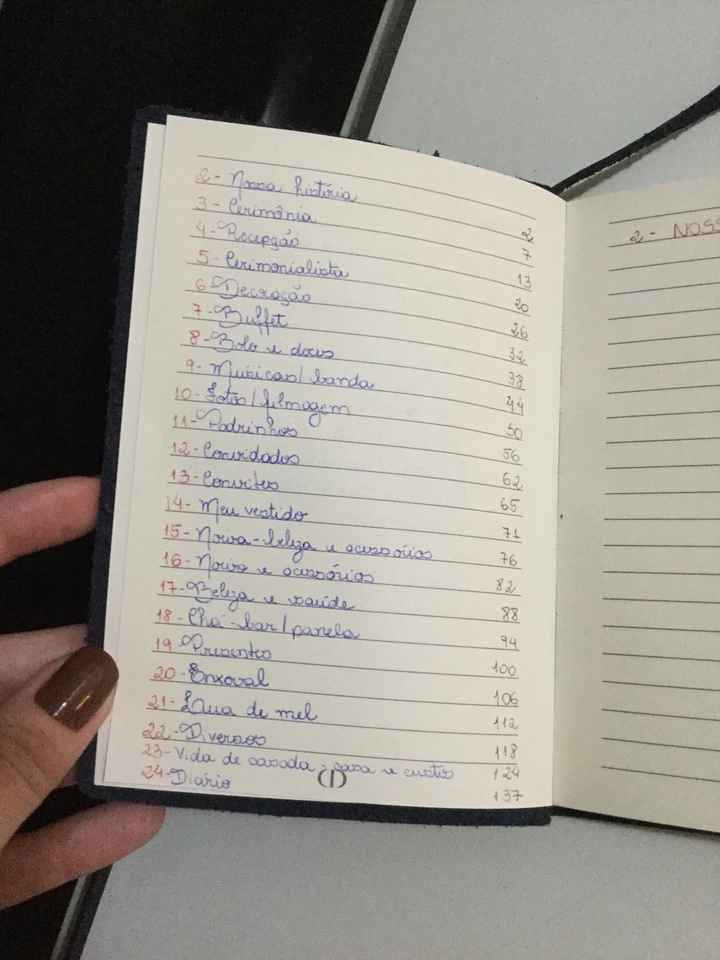 2- Nossa história 2
3- Cerimônia 7
4- Recepção 13
5- Cerimonialista 20
6- Decoração 26
7- Buffet 32
8- Bolo e doces 38
9- Músicas/banda 44
10- Fotos/filmagem 50
11- Padrinhos 56
12- Convidados 62
13- Convites 65
14- Meu vestido 71
15- Noiva-beleza e acessórios 76
16- Noivo e acessórios 82
17- Beleza e saúde 88
18- Chá-bar/panela 94
19 Presentes 100
20- Enxoval 106
21- Lua de mel 112
22- Diversos 118
23- Vida de casada: casa e custos 124
24- Diário 137
(1)
2- NOSS